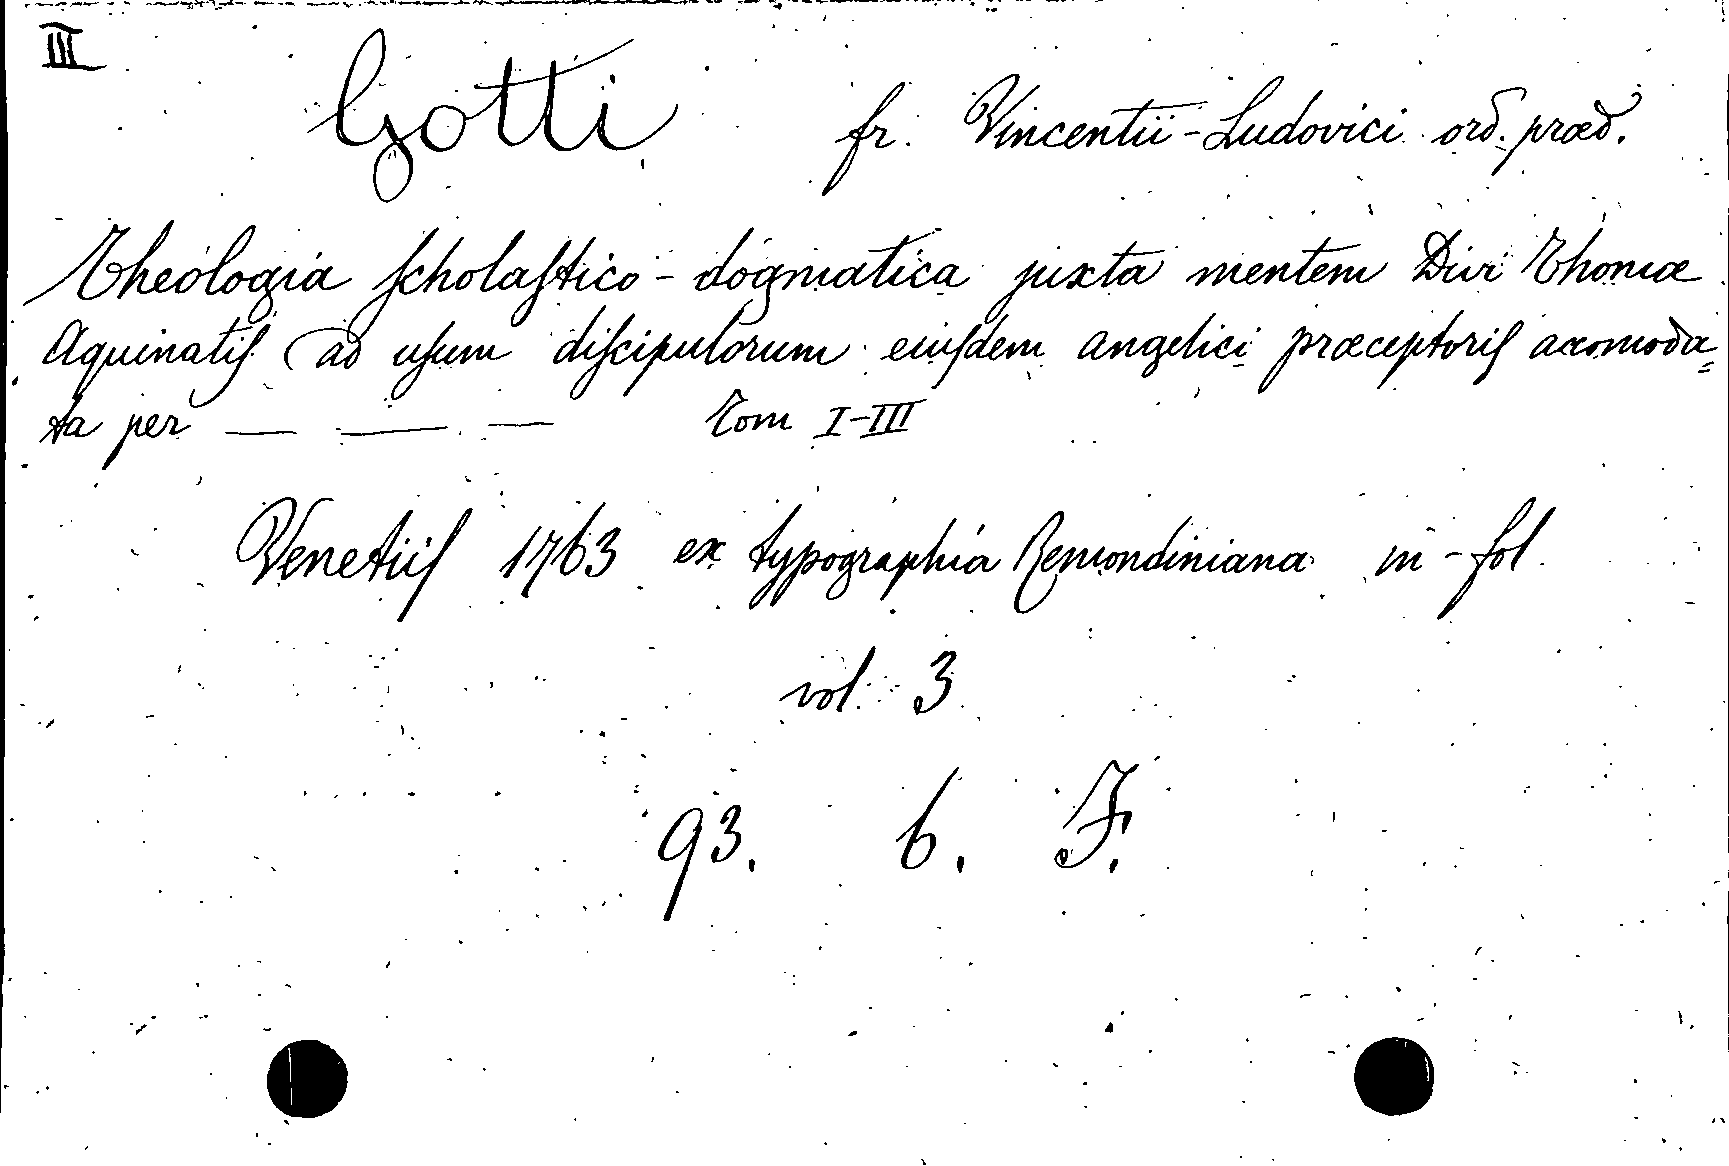 III
Gotti fr. Vincentii-Ludovici ord. præd.
Theologia ſcholaſtico-dogmatica juxta mentem Divi Thomæ
Aquinatiſ ad uſum diſcipulorum eiuſdem angelici præceptoriſ accomoda=
ta per — — — Tom I-III
Venetiiſ 1763 ex typographia Remondiniana in-fol
vol. 3
93. 6. F.